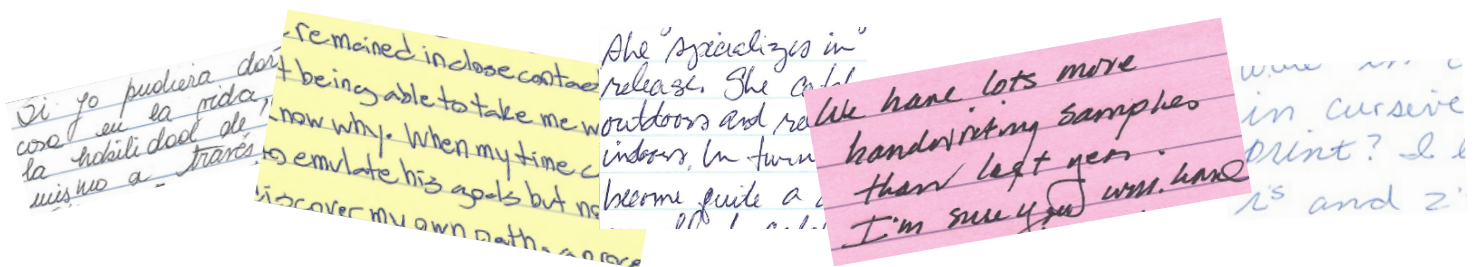 Si yo pudiera dar
cosa en la vida,
la habilidad de
mismo a través
remained in close contac
t being able to take me w
now why. When my time c
to emulate his goals but no
iscover my own path. an
She "specializes in"
release. She catch
outdoors and re
indoors. In turn
become quite a
We have lots more
handwriting samples
than last year.
I'm sure you will have
in cursive
print? I l
r's and z'